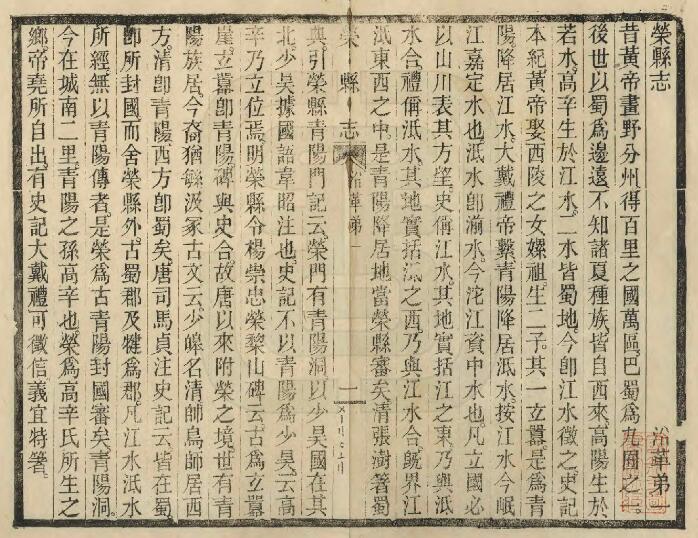 榮縣志
沿革弟一
昔黃帝畫野分州得百里之國萬區巴蜀爲古國之一
後世以蜀爲邊遠不知諸夏種族皆自西來高陽生於
若水高辛生於江水二水皆蜀地今卽江水徵之史記
本紀黃帝娶西陵之女嫘祖生二子其一玄囂是爲青
陽降居江水大戴禮帝繫青陽降居泜水按江水今岷
江嘉定水也泜水卽湔水今沱江資中水也凡立國必
以山川表其方望史稱江水其地實括江之東乃與泜
水合禮稱泜水其地實括泜之西乃與江水合旣界江
泜東西之中是青陽降居地當榮縣審矣清張澍著蜀
榮縣志
沿革弟一
一
典引榮縣青陽門記云榮門有青陽洞以少昊國在其
北少昊據國語韋昭注也史記不以青陽爲少昊云高
辛乃立位焉明榮縣令楊崇忠榮黎山碑云古爲玄囂
崖玄囂卽青陽碑與史合故唐以來附榮之境世有青
陽族居今裔猶緐汲冢古文云少皞名清師鳥師居西
方清卽青陽西方卽蜀矣唐司馬貞注史記云皆在蜀
卽所封國而舍榮縣外古蜀郡及犍爲郡凡江水泜水
所經無以青陽傳者是榮爲古青陽封國審矣青陽洞
今在城南二里青陽之孫高辛也榮爲高辛氏所生之
鄉帝堯所自出有史記大戴禮可徵信義宜特箸